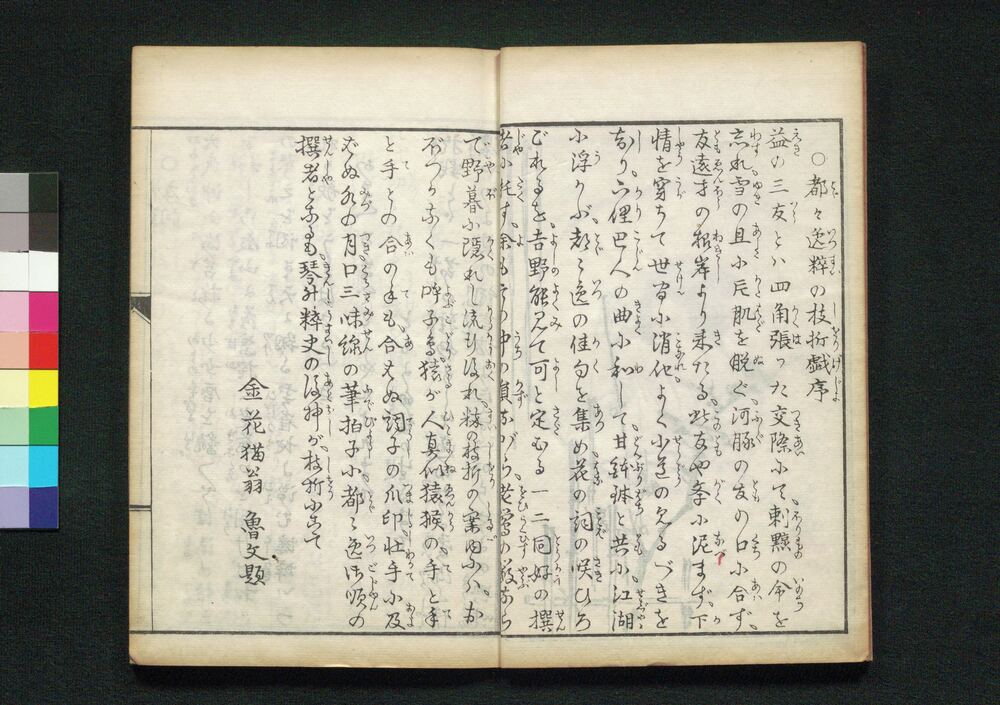 ○都々逸粋の枝折戯序
益の三友とハ四角張つた交際にて、刺黥の命を
忘れ雪の旦に片肌を脱ぐ、河豚の友の口に合ず
友遠方の根岸より来たる、此友や学に泥まず、下
情を穿ちて世間に消化よく小説の見るべきを
なり、下俚巴人の曲に和して、甘鉢と共に江湖
に浮かぶ、都々逸の佳句を集め花の詞の咲ひろ
ごれるを、吉野能見て可と定むる一二同好の撰
者に托す、余も其の中の員ながら、老鶯の藪なら
で野暮に隠れし流行後れ、粋の枝折の案内にハ、お
ぼつかなくも呼子鳥、猿が人真似猿猴の手と手
と手との合の手も、合はぬ調子の爪印、壮手に及
ばぬ水の月、口三味線の筆拍子、都々逸御順の
撰者となるも、琴升粋史の後押が、枝折にこそ
金花猫翁 魯文題